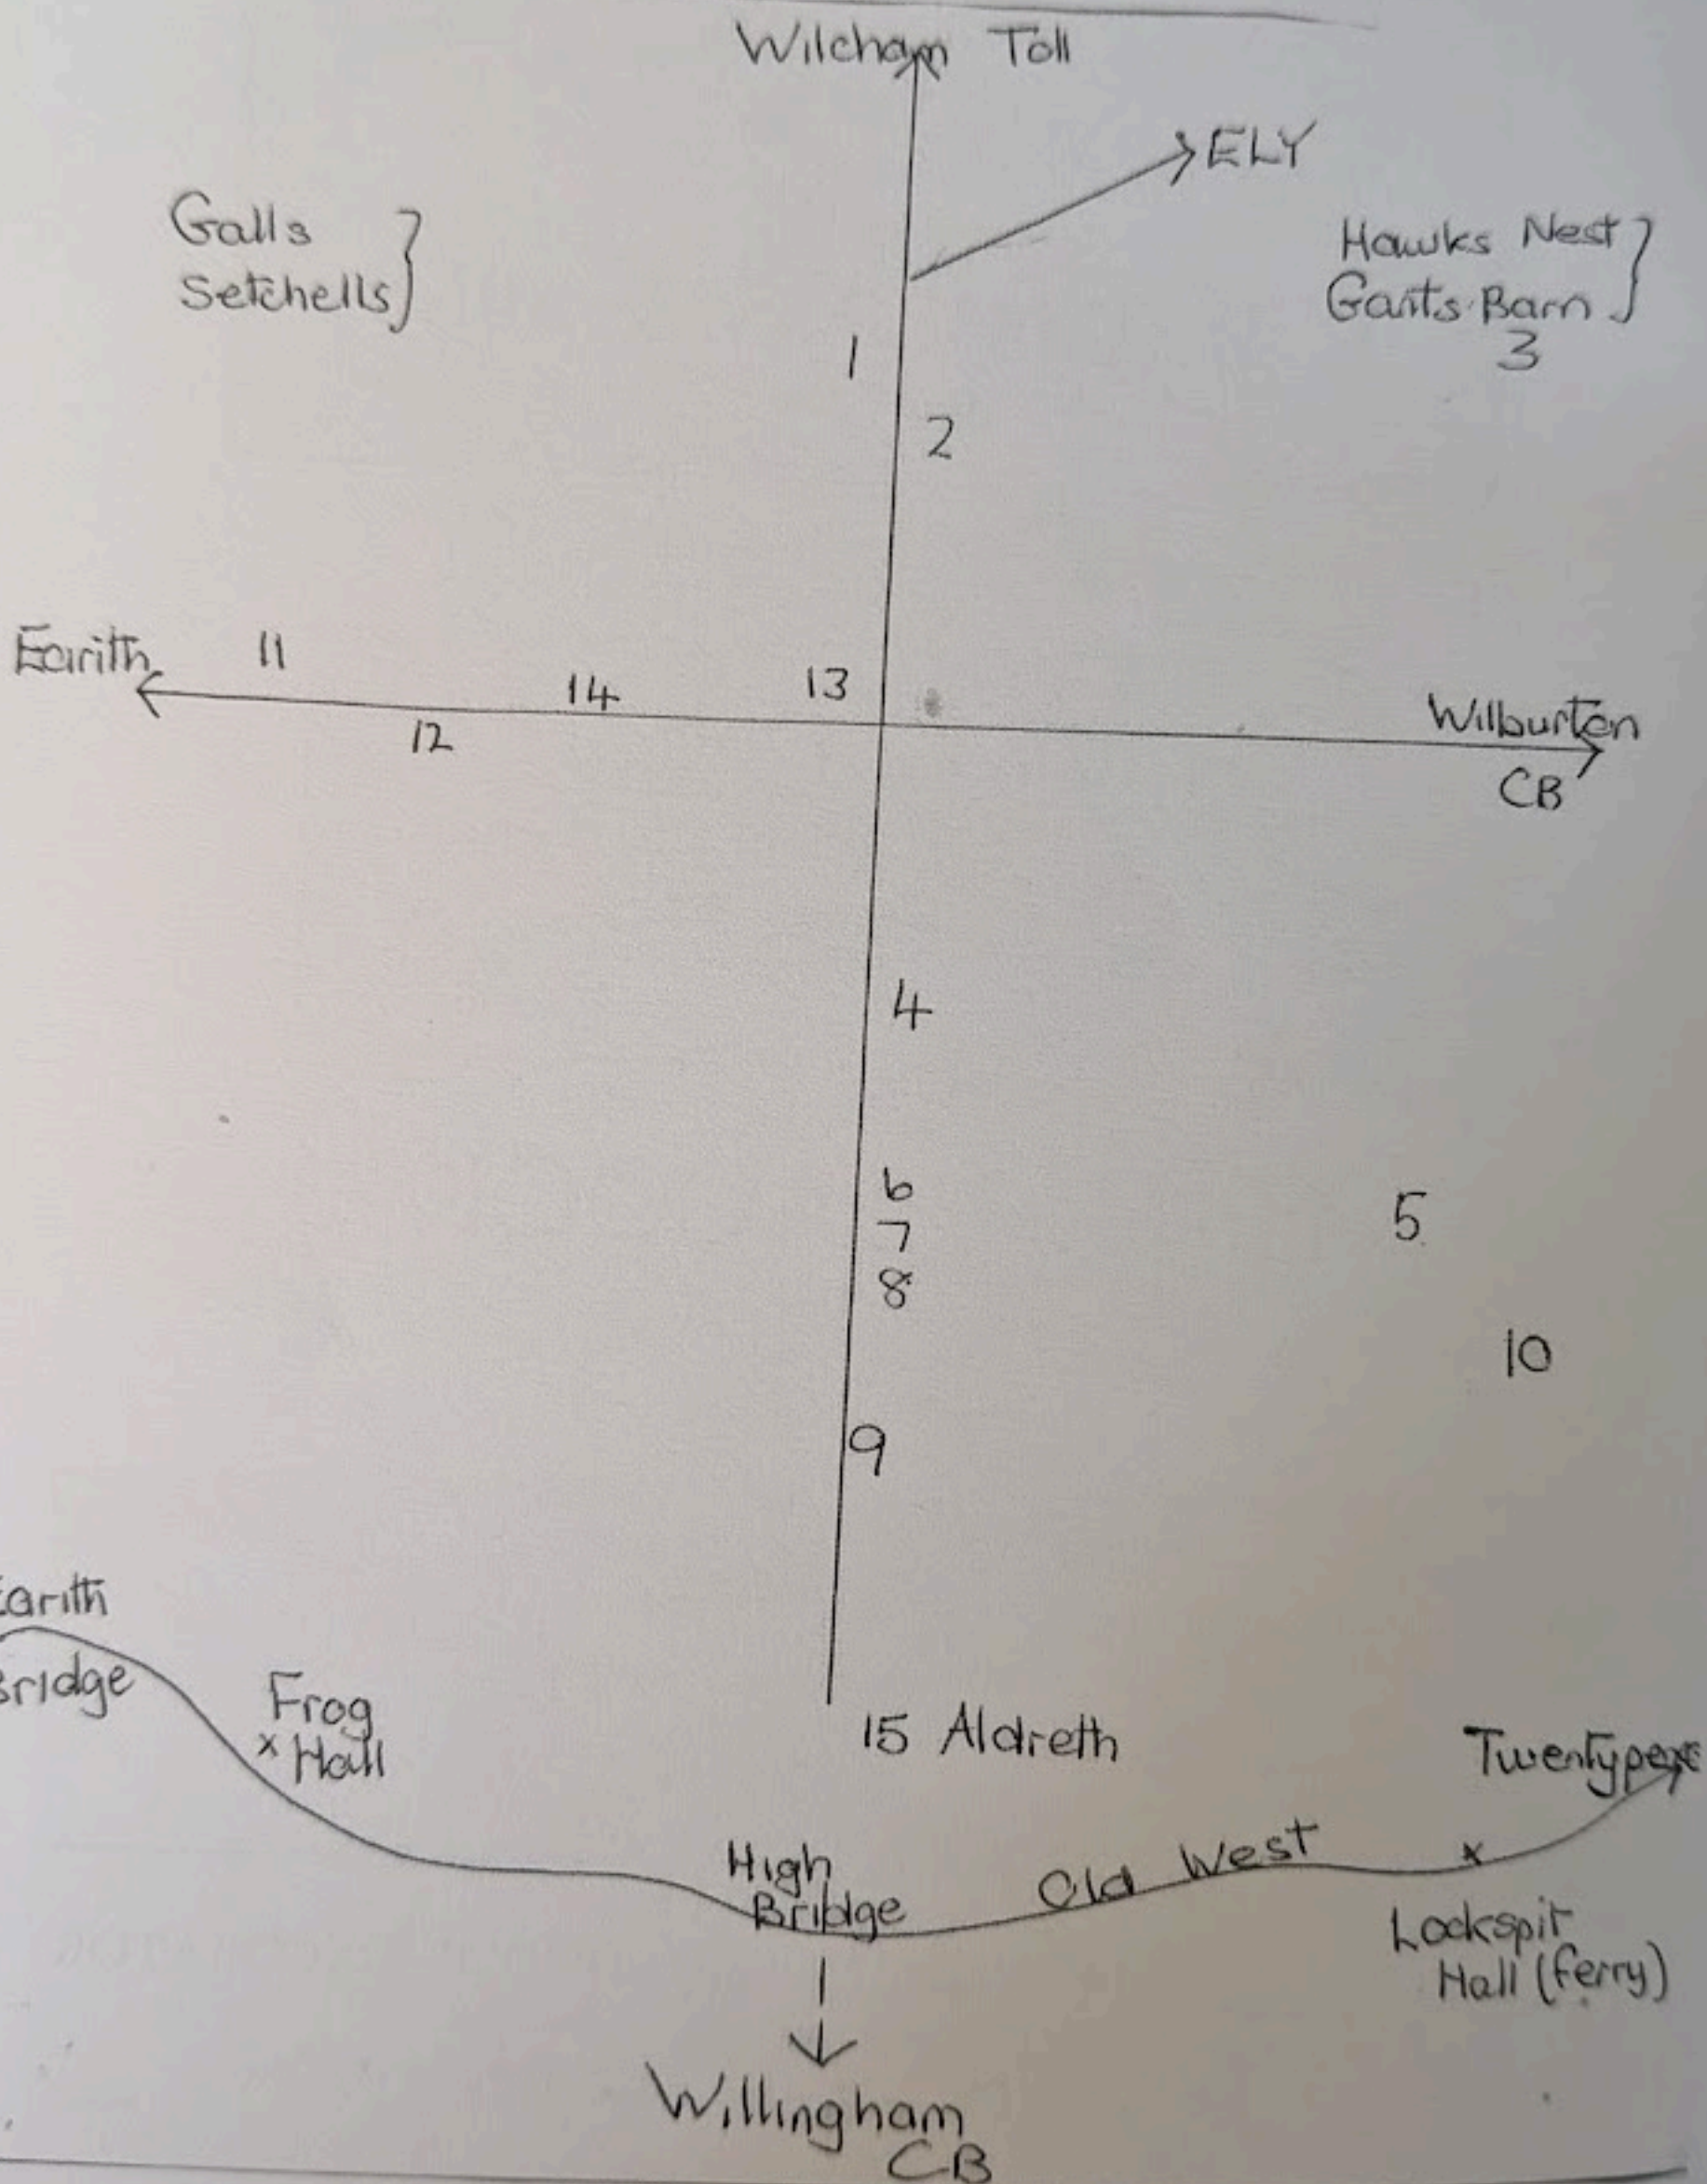 Wilcham Toll
ELY
Galls
Setchells
Hawks Nest
Gants Barn
3
1
2
Earith
11
14
13
12
Wilburton
CB
4
6
7
8
5
10
9
Earith
Bridge
Frog
x Hall
15 Aldreth
Twentypence
High
Bridge
Old West
x
Lockspit
Hall (ferry)
Willingham
CB